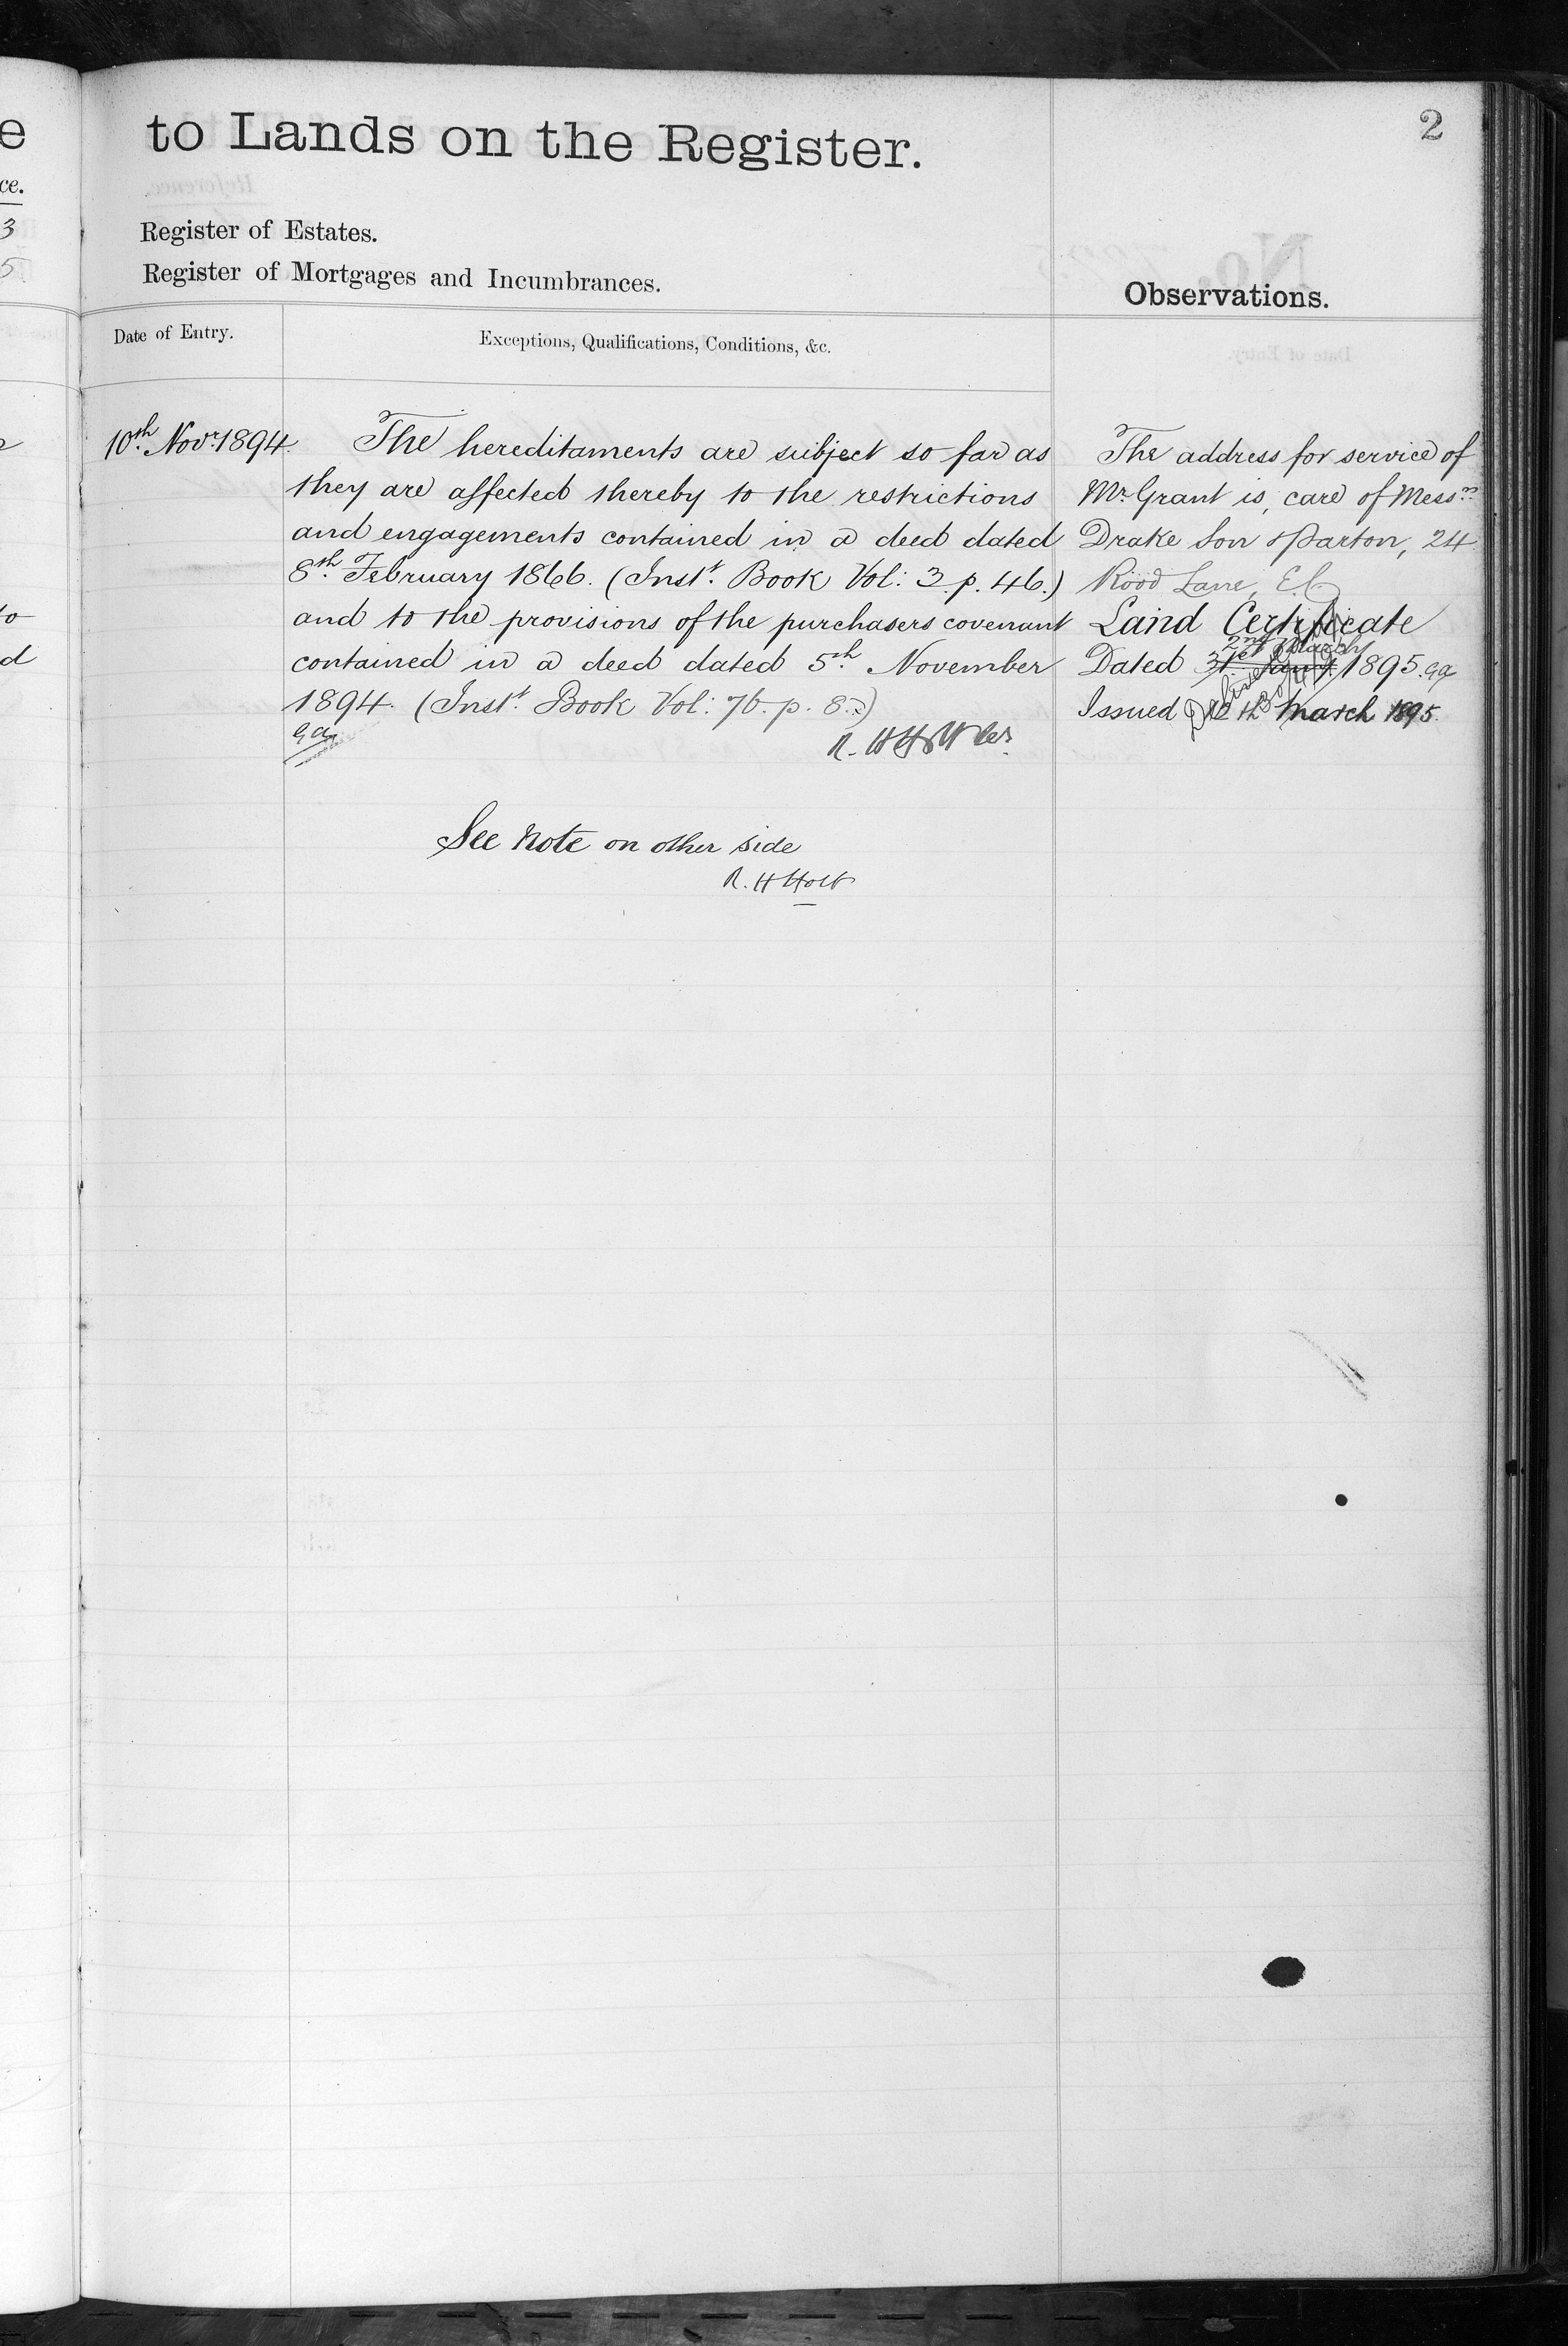 e
ce.
3
5
to
d
to Lands on the Register.
2
Register of Estates.
Register of Mortgages and Incumbrances.
Observations.
Date of Entry.
Exceptions, Qualifications, Conditions, &c.
10th Novr. 1894.
The hereditaments are subject so far as
they are affected thereby to the restrictions
and engagements contained in a deed dated
8th February 1866. (Inst. Book Vol: 3. p. 46.)
and to the provisions of the purchasers covenant
contained in a deed dated 5th November
1894. (Inst. Book Vol: 76. p. 8.)
R. H Holt
See Note on other side
R. H Holt
The address for service of
Mr. Grant is, care of Messrs
Drake Son & Parton, 24
Rood Lane, E.C.
Land Certificate
2nd March
Dated 31st Jany. 1895. ga
Issued 12th March 1895.
Delivered